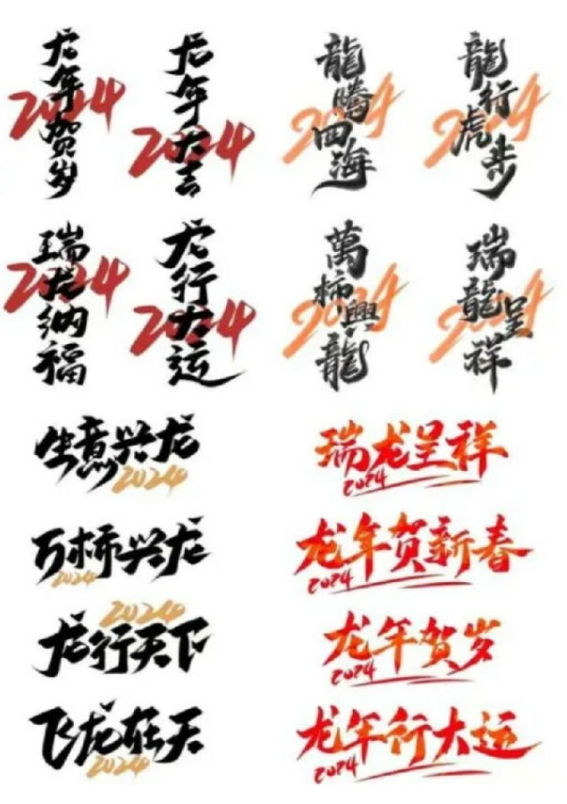 龙年贺岁
2024
龙年大吉
2024
龍腾四海
2024
龍行虎步
2024
瑞龙纳福
2024
龙行大运
2024
萬柿興龍
2024
瑞龍呈祥
2024
生意兴龙
2024
瑞龙呈祥
2024
万柿兴龙
2024
龙年贺新春
2024
2024
龙行天下
龙年贺岁
2024
飞龙在天
2024
龙年行大运
2024